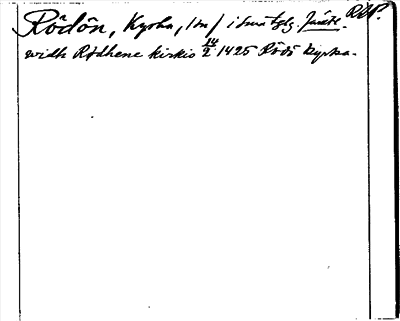 Rödön, Kyrka, /sn/ i Jämtl. RAP.
widh Rødhene kirkio 14/2 1425 Rödö Kyrka.